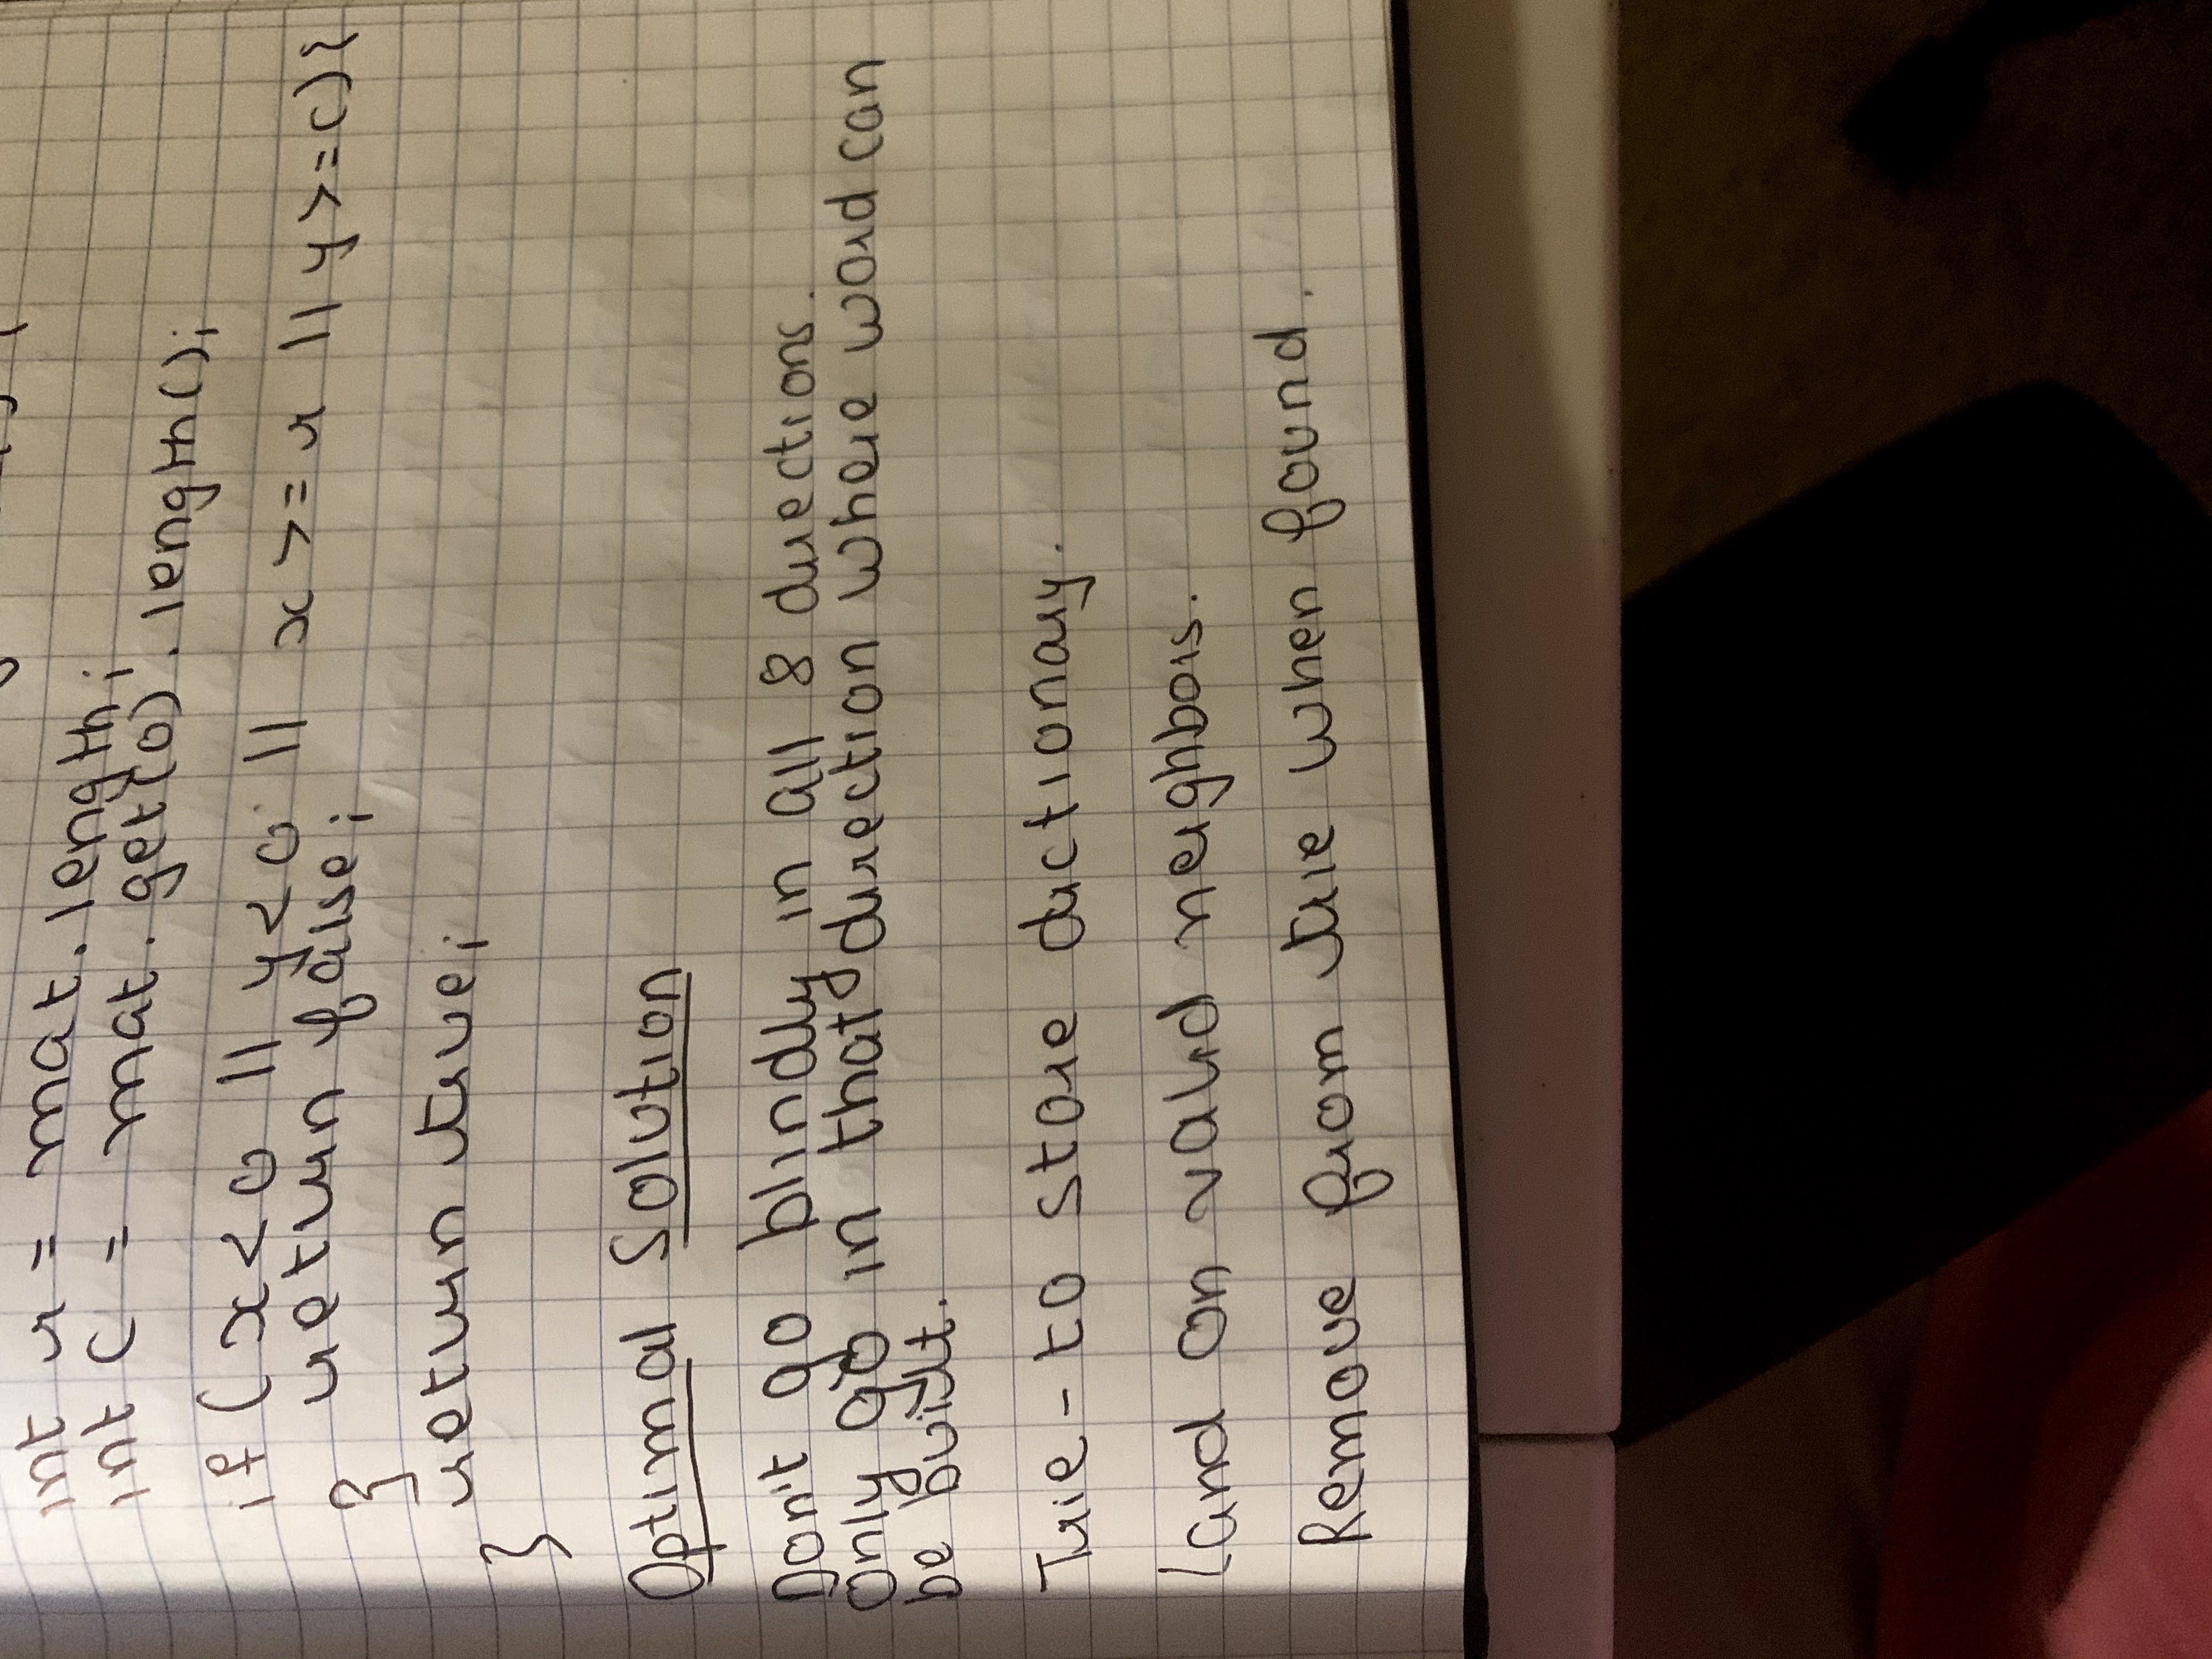 int r = mat.length;
int c = mat.get(0).length();
if (x<0 || y<0 || x >= r || y>=c){
return false;
}
return true;
}
Optimal Solution
Don't go blindly in all 8 directions.
Only go in that direction where word can
be built.
Trie - to store dictionary.
Land on valid neighbors.
Remove from trie when found.